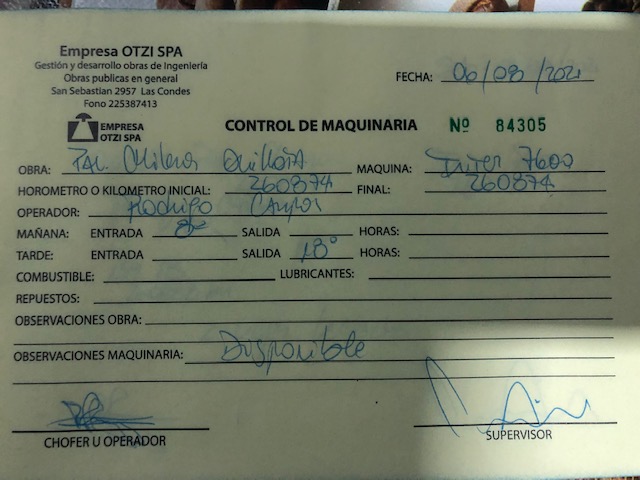 Empresa OTZI SPA
Gestión y desarrollo obras de Ingeniería
Obras publicas en general
San Sebastian 2957 Las Condes
Fono 225387413
FECHA: 06/08/2021
EMPRESA
OTZI SPA
CONTROL DE MAQUINARIA Nº 84305
OBRA: MAQUINA: 7600
HOROMETRO O KILOMETRO INICIAL: 260874 FINAL: 260874
OPERADOR: Rodrigo Campos
MAÑANA: ENTRADA 8º SALIDA HORAS:
TARDE: ENTRADA SALIDA 18º HORAS:
COMBUSTIBLE: LUBRICANTES:
REPUESTOS:
OBSERVACIONES OBRA:
OBSERVACIONES MAQUINARIA: Disponible
CHOFER U OPERADOR SUPERVISOR